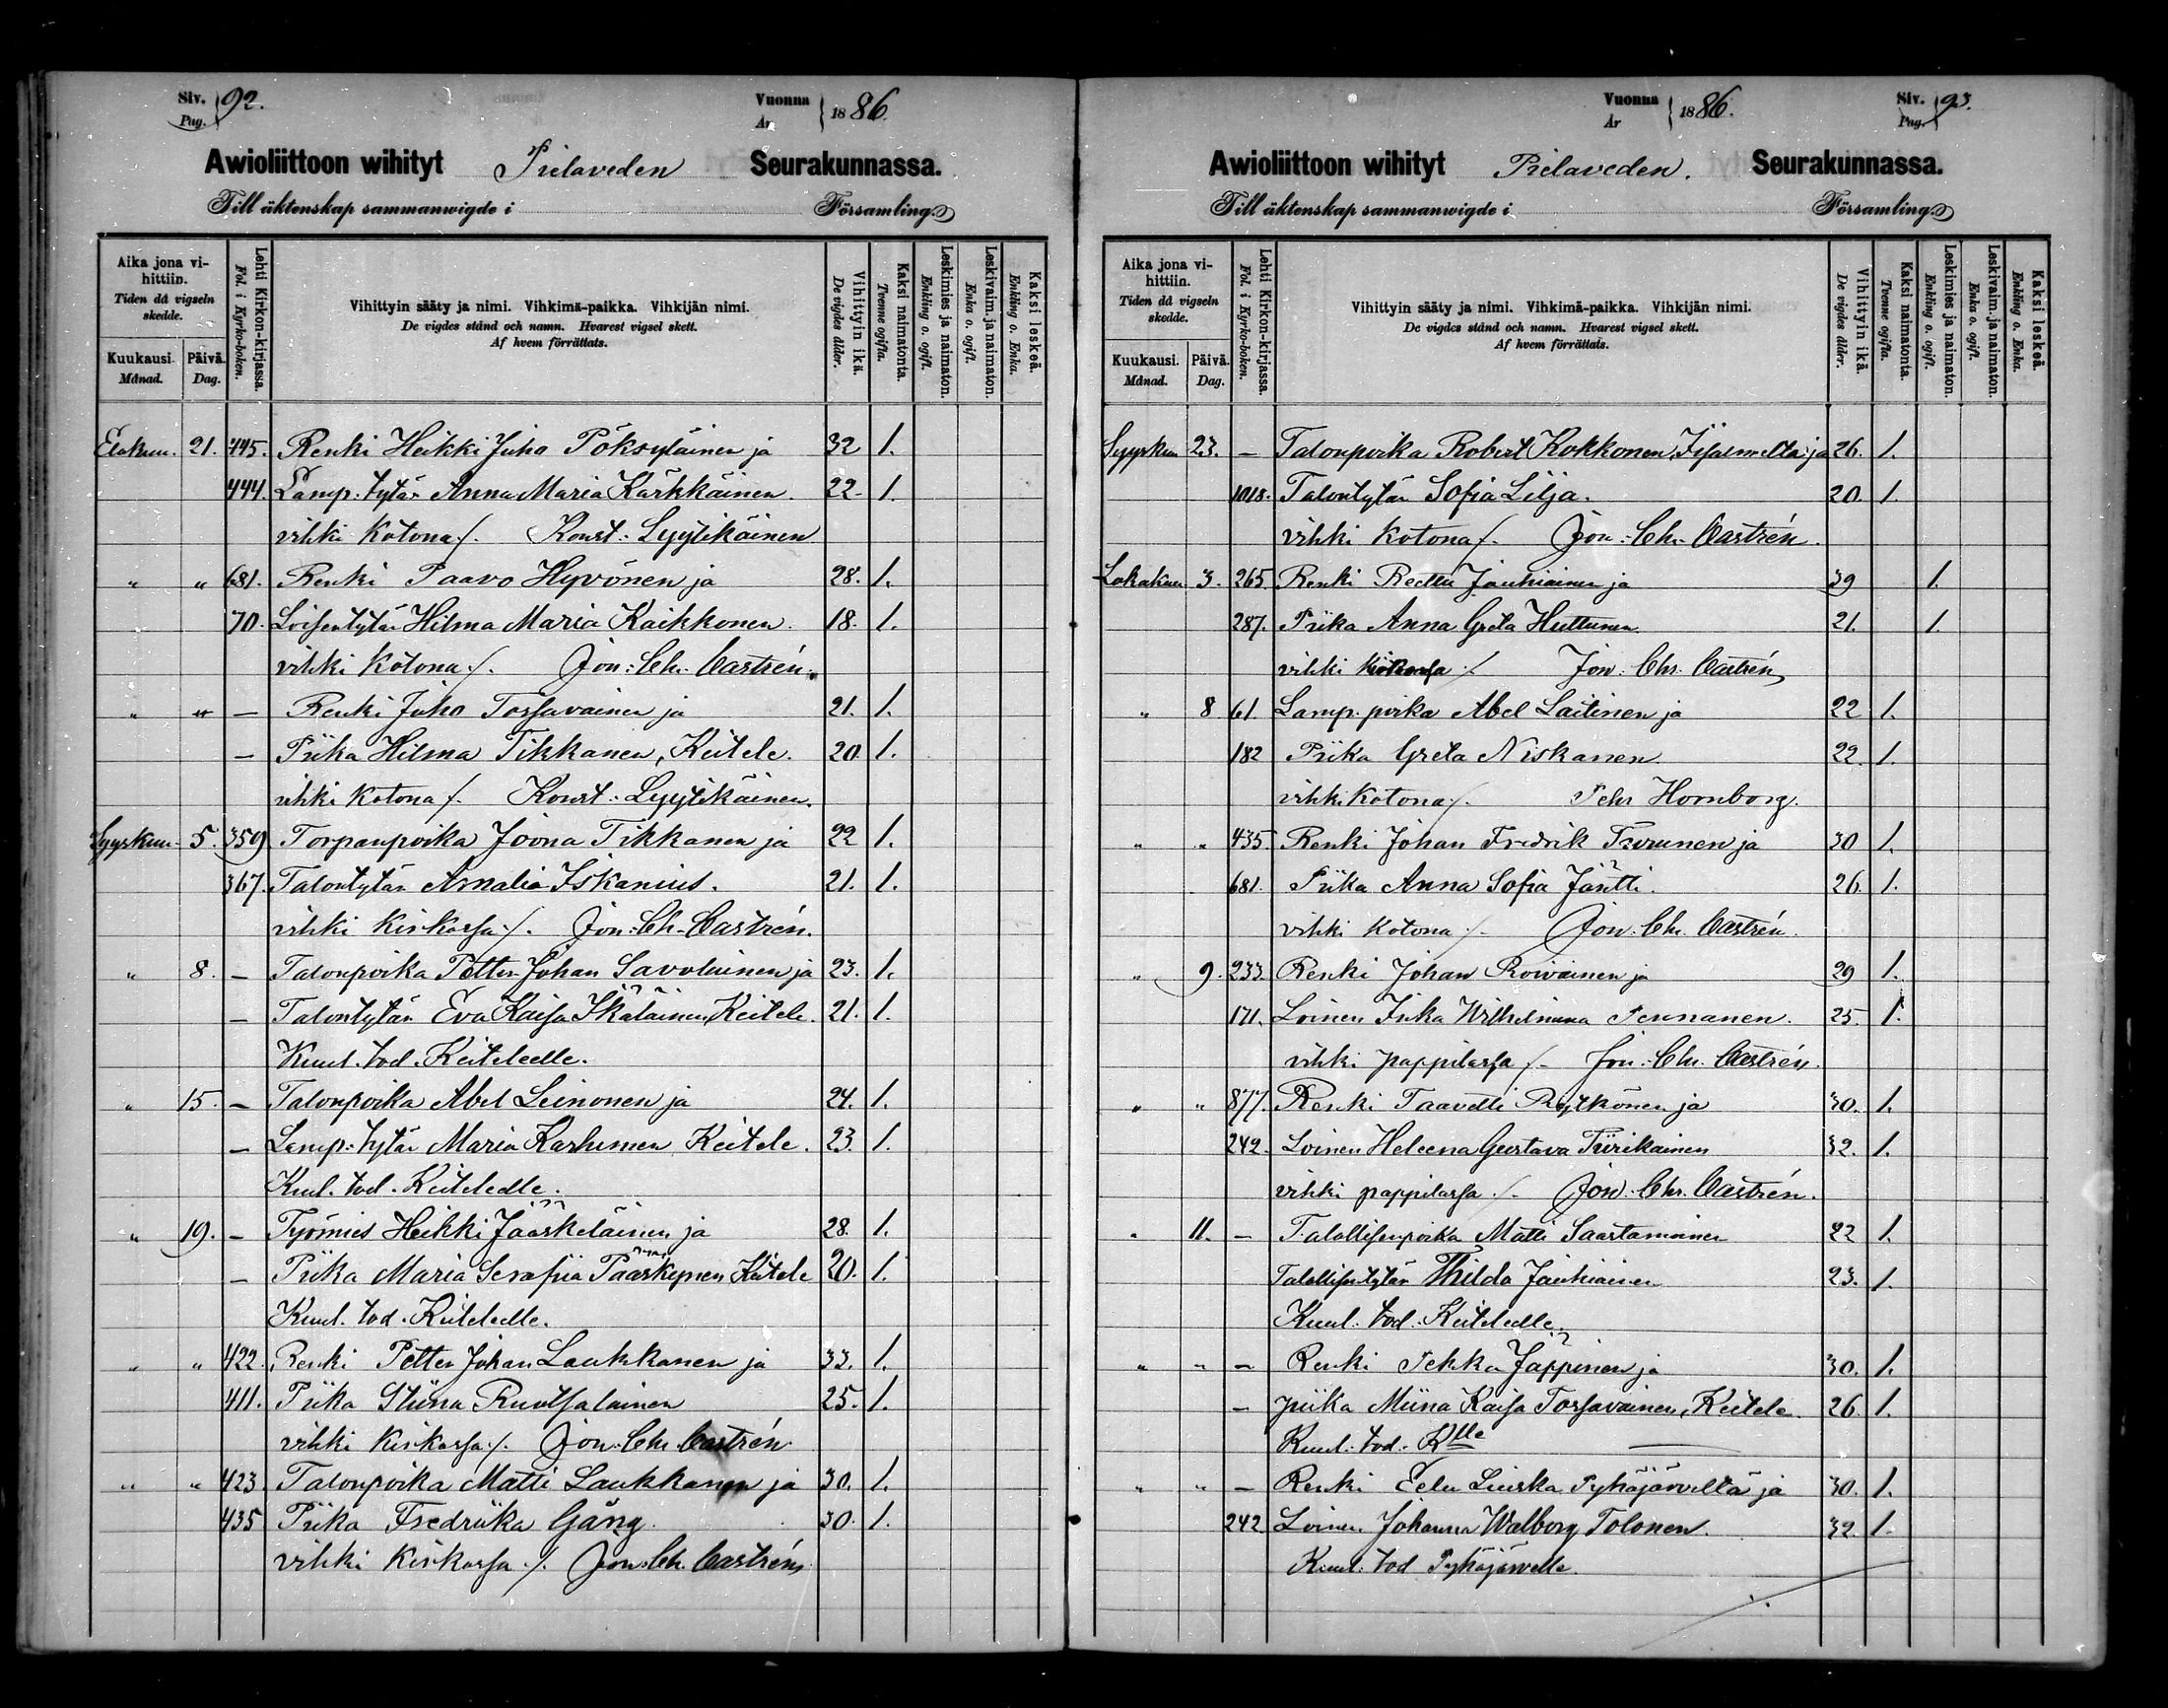 Siv. Pag. 92.
Vuonna År 1886.
Awioliittoon wihityt Pielaveden Seurakunnassa.
Till äktenskap sammanwigde i Församling.
Aika jona vihittiin. Tiden då vigseln skedde.
Kuukausi. Månad.
Päivä. Dag.
Lehti Kirkon-kirjassa. Fol. i Kyrko-boken.
Vihittyin sääty ja nimi. Vihkimä-paikka. Vihkijän nimi.
De vigdes stånd och namn. Hvarest vigsel skett.
Af hvem förrättats.
Vihittyin ikä. De vigdes ålder.
Kaksi naimatonta. Tvenne ogifta.
Leskimies ja naimaton. Enkling o. ogift.
Leskivaim. ja naimaton. Enka o. ogift.
Kaksi leskeä. Enkling o. Enka.
Elokuu. 21. 445. Renki Heikki Juho Pöksyläinen ja 32 1.
444. Lamp. tytär Anna Maria Kärkkäinen. 22. 1.
vihki kotona /. Konst: Lyytikäinen
" " 681. Renki Paavo Hyvönen ja 28. 1.
70. Loisentytär Hilma Maria Kaikkonen. 18. 1.
vihki kotona /. Jon: Chr. Castrén.
" " — Renki Juho Torssavainen ja 21. 1.
— Piika Hilma Tikkanen, Keitele. 20. 1.
vihki kotona /. Konst: Lyytikäinen.
Syyskuu. 5. 359. Torpanpoika Joona Tikkanen ja 22 1.
367. Talontytär Amalia Iskanius. 21. 1.
vihki kirkossa /. Jon: Ch. Castrén.
" 8. — Talonpoika Petter Johan Savolainen ja 23. 1.
— Talontytär Eva Kaisa Ikäläinen, Keitele. 21. 1.
Kuul. tod. Keiteleelle.
" 15. — Talonpoika Abel Leinonen ja 24. 1.
— Lamp: tytär Maria Karhunen, Keitele. 23. 1.
Kuul. tod. Keiteleelle.
" 19. — Työmies Heikki Jääskeläinen ja 28. 1.
— Piika Maria Serafia Pääskynen Keitele 20. 1.
Kuul. tod. Keiteleelle.
" " 422. Renki Petter Johan Laukkanen ja 33. 1.
411. Piika Stiina Ruotsalainen 25. 1.
vihki kirkossa /. Jon: Chr. Castrén
" " 423. Talonpoika Matti Laukkanen ja 30. 1.
435 Piika Fredriika Gång. 30. 1.
vihki kirkossa /. Jon: Ch. Castrén
Vuonna År 1886.
Siv. Pag. 93.
Awioliittoon wihityt Pielaveden. Seurakunnassa.
Till äktenskap sammanwigde i Församling.
Aika jona vihittiin. Tiden då vigseln skedde.
Kuukausi. Månad.
Päivä. Dag.
Lehti Kirkon-kirjassa. Fol. i Kyrko-boken.
Vihittyin sääty ja nimi. Vihkimä-paikka. Vihkijän nimi.
De vigdes stånd och namn. Hvarest vigsel skett.
Af hvem förrättats.
Vihittyin ikä. De vigdes ålder.
Kaksi naimatonta. Tvenne ogifta.
Leskimies ja naimaton. Enkling o. ogift.
Leskivaim. ja naimaton. Enka o. ogift.
Kaksi leskeä. Enkling o. Enka.
Syyskuu 23. — Talonpoika Robert Kokkonen, Iisalmelta ja 26. 1.
1018. Talontytär Sofia Lilja. 20. 1.
vihki kotona /. Jon: Chr. Castrén.
Lokakuu 3. 265 Renki Reettu Jauhiainen ja 39 1.
287. Piika Anna Greta Huttunen. 21. 1.
vihki /. Jon: Chr. Castrén
" 8 61. Lamp. poika Abel Laitinen ja 22 1.
182 Piika Greta Niskanen 22. 1.
vihki kotona /. Pehr Hornborg.
" " 435 Renki Johan Fredrik Turunen ja 30 1.
681. Piika Anna Sofia Jäntti. 26. 1.
vihki kotona /. Jon: Chr. Castrén.
" 9. 233. Renki Johan Roivainen ja 29 1.
171. Loinen Wilhelmiina Pennanen. 25. 1.
vihki pappilassa /. Jon: Chr. Castrén.
" " 877. Renki Taavetti Rytkönen ja 30. 1.
242. Loinen Heleena Gustava Tiirikainen 32. 1.
vihki pappilassa /. Jon: Chr. Castrén.
" 11. — Talollisenpoika Matti Saastamoinen 22 1.
Talollisentytär Thilda Jauhiainen 23. 1.
Kuul. tod. Keiteleelle.
" " — Renki Pekka Jäppinen ja 30. 1.
— piika Miina Kaisa Torssavainen, Keitele. 26. 1.
Kuul. tod. Klle
" " — Renki Eelu Liuska Pyhäjärveltä ja 30. 1.
242 Loinen Johanna Walborg Tolonen. 32. 1.
Kuul. tod Pyhäjärvelle.